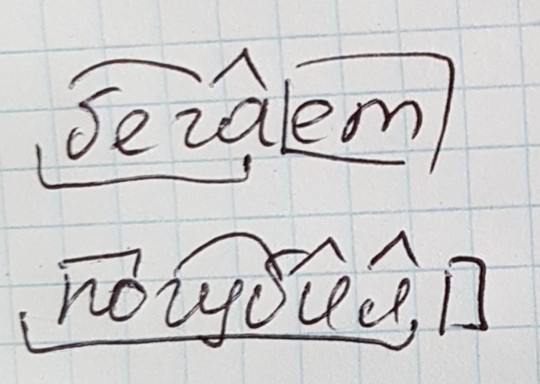 бегает
погубил